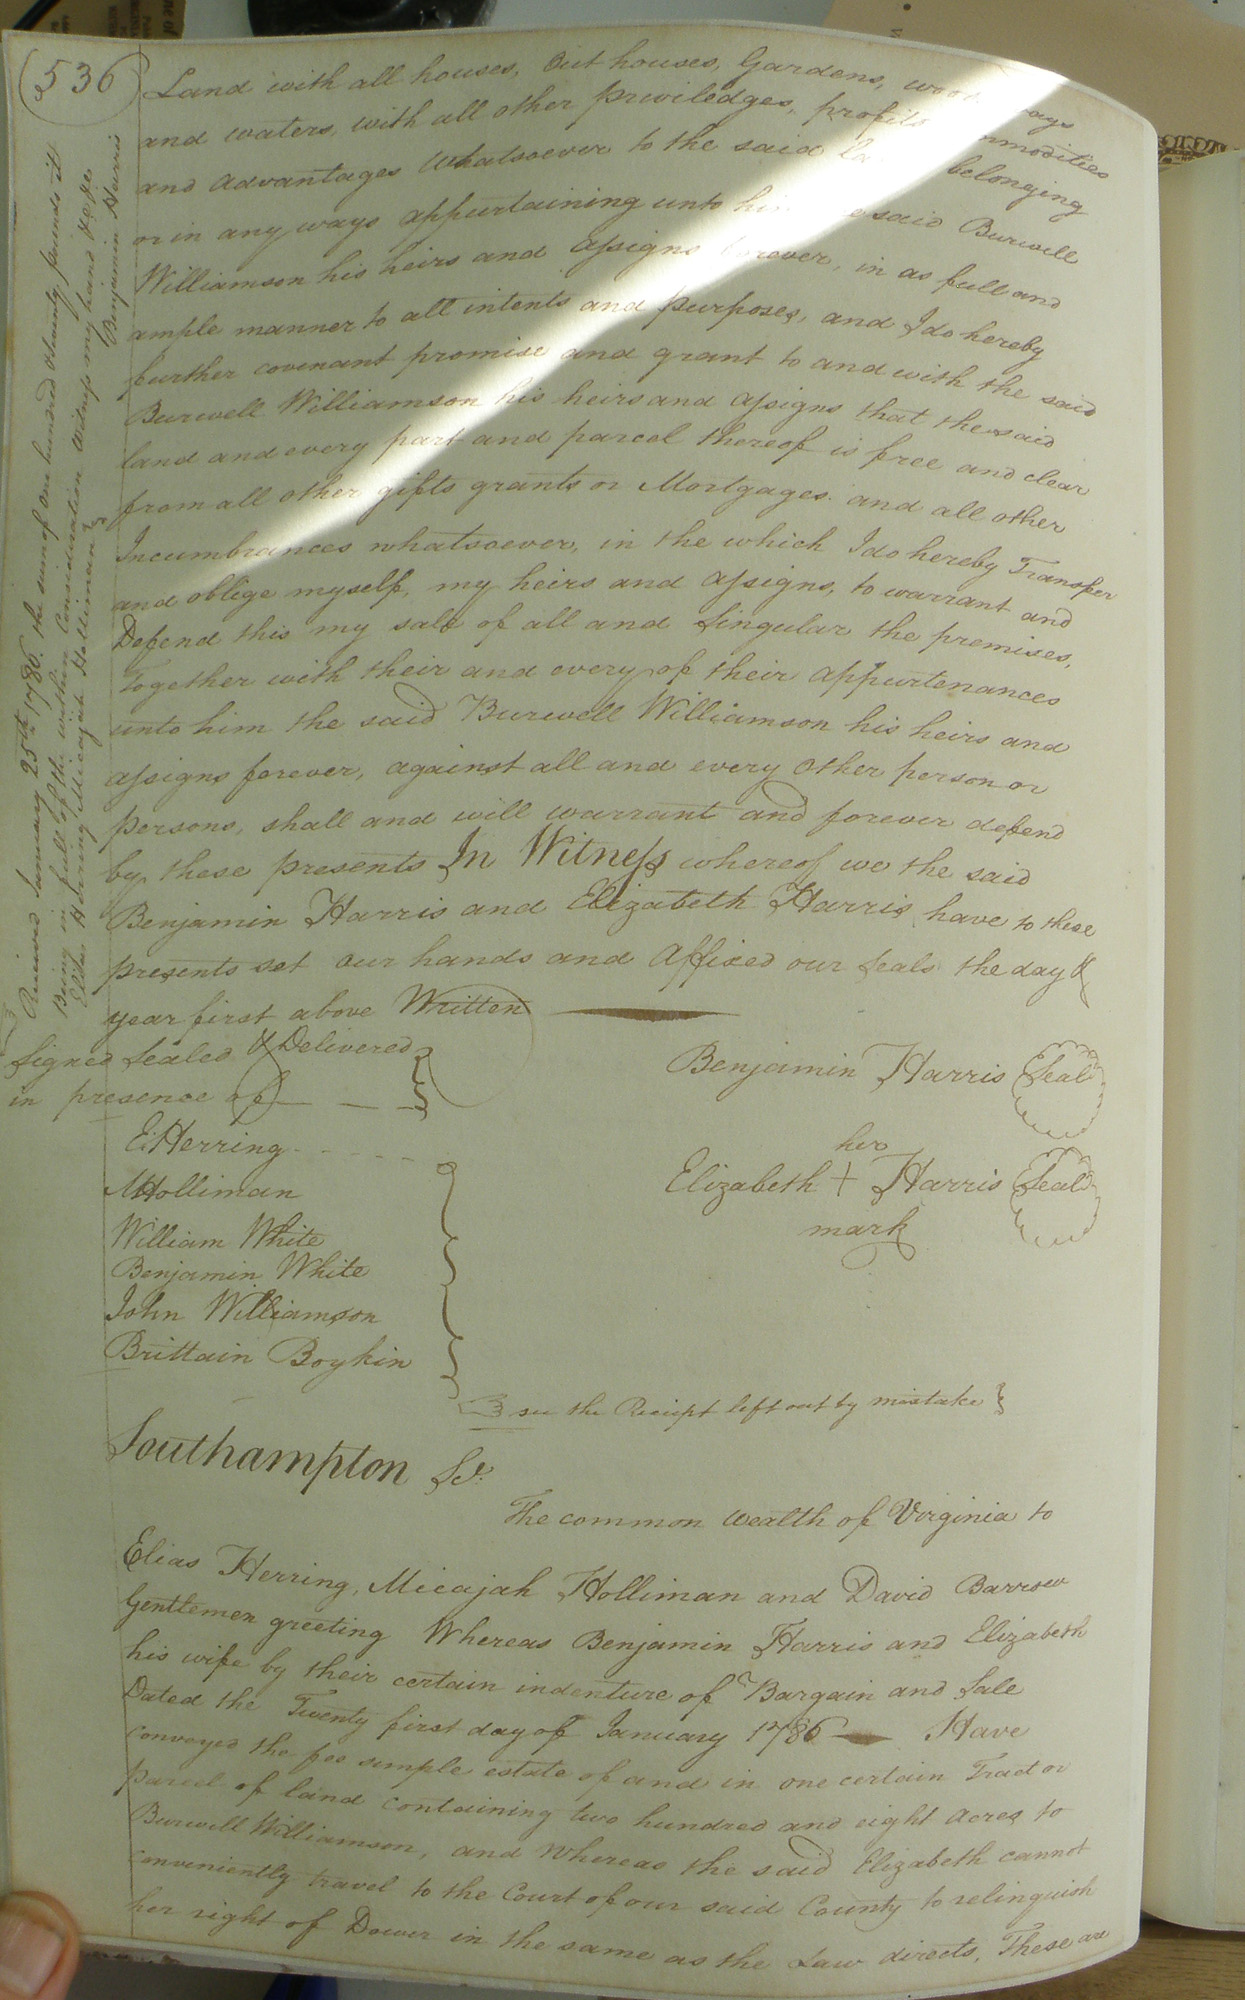 536
Land with all houses, Out houses, Gardens, wood ways
and waters, with all other priviledges, profits commodities
and advantages whatsoever to the said belonging
or in any ways appurtaining unto him said Burwell
Williamson his heirs and assigns forever, in as full and
ample manner to all intents and purposes, and I do hereby
further covenant promise and grant to and with the said
Burwell Williamson his heirs and assigns that the said
land and every part and parcel thereof is free and clear
from all other gifts grants or Mortgages and all other
Incumbrances whatsoever, in the which I do hereby Transfer
and oblige myself, my heirs and assigns, to warrant and
Defend this my sale of all and singular the premises,
Together with their and every of their appurtenances
unto him the said Burwell Williamson his heirs and
assigns forever, against all and every other person or
persons, shall and will warrant and forever defend
by these presents In Witness whereof we the said
Benjamin Harris and Elizabeth Harris have to these
presents set our hands and Affixed our seals the day &
year first above Written
Signed Sealed & Delivered
in presence of
E. Herring
M Holliman
William White
Benjamin White
John Williamson
Brittain Boykin
Benjamin Harris Seal
her
Elizabeth + Harris Seal
mark
see the Receipt left out by mistake
Southampton Sc.
The common wealth of Virginia to
Elias Herring, Micajah Holliman and David Barrow
Gentlemen greeting Whereas Benjamin Harris and Elizabeth
his wife by their certain indenture of Bargain and Sale
Dated the Twenty first day of January 1786 Have
conveyed the fee simple estate of and in one certain Tract or
parcel of land containing two hundred and eight acres to
Burwell Williamson, and Whereas the said Elizabeth cannot
conveniently travel to the Court of our said County to relinquish
her right of Dower in the same as the Law directs, These are
Received January 25th 1786. the sum of one hundred & twenty pounds it
Being in full of the within Consideration Witness my hand &
Elias Herring Micajah Holliman Benjamin Harris